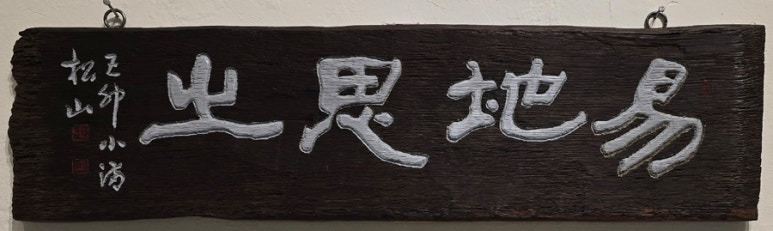 易地思之
己卯小滿
松山